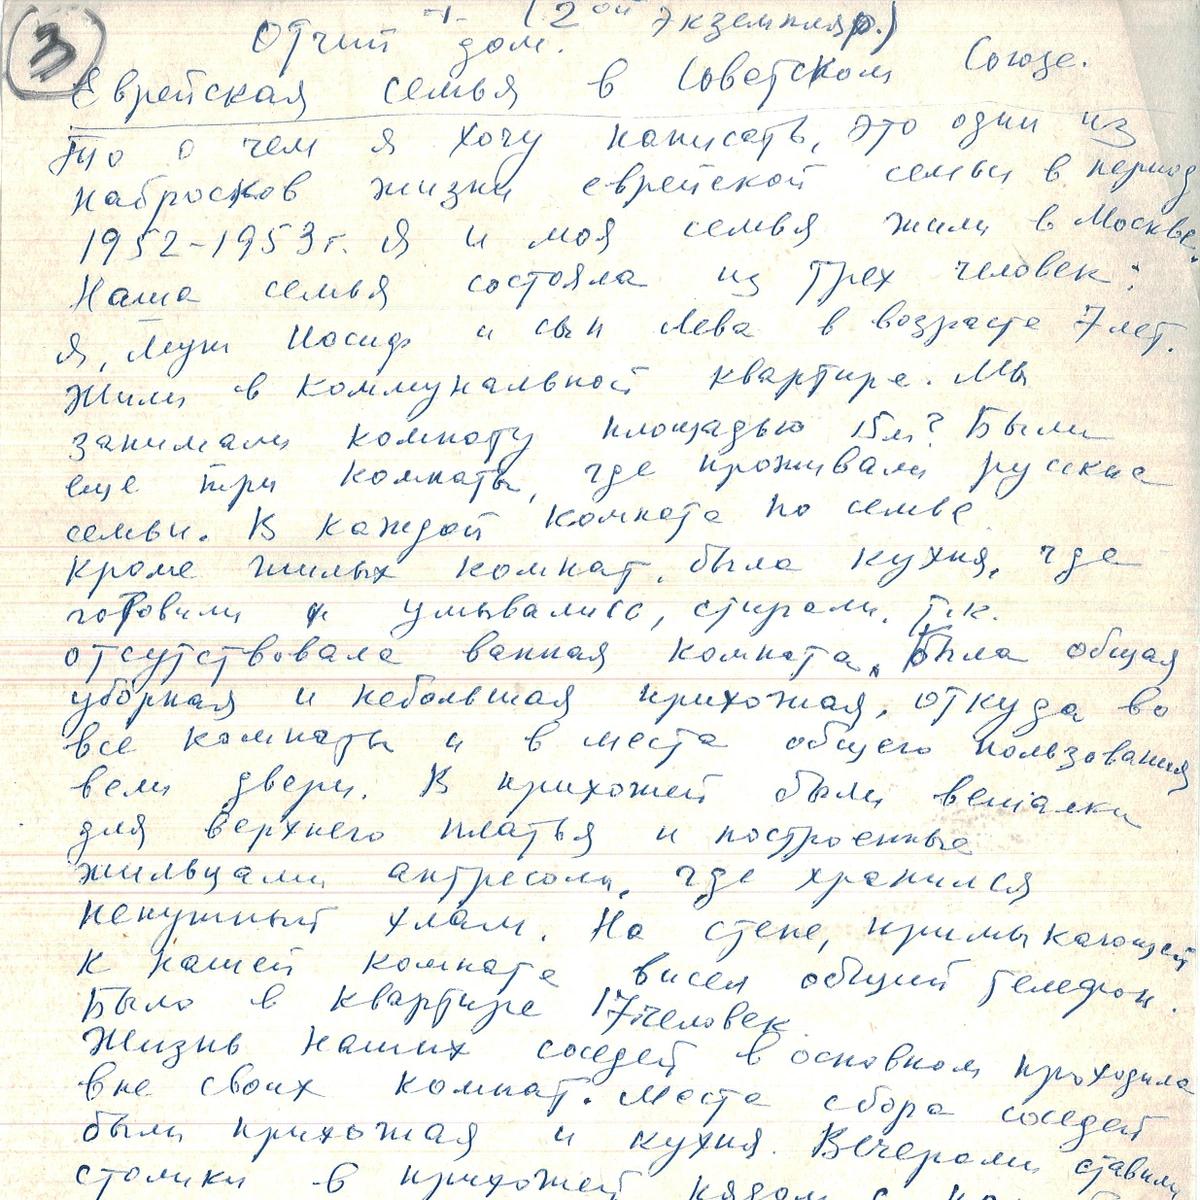 3
(2ой экземпляр.)
Отчий дом.
Еврейская семья в Советском Союзе.
То о чем я хочу написать, это один из
набросков жизни еврейской семьи в период
1952-1953г. Я и моя семья жили в Москве.
Наша семья состояла из трех человек:
я, муж Иосиф и сын Лева в возрасте 7 лет.
Жили в коммунальной квартире. Мы
занимали комнату площадью 15м². Были
еще три комнаты, где проживали русские
семьи. В каждой комнате по семье.
Кроме жилых комнат, была кухня, где
готовили и умывались, стирали, т.к.
отсутствовала ванная комната. Была общая
уборная и небольшая прихожая, откуда во
все комнаты и в места общего пользования
вели двери. В прихожей были вешалки
для верхнего платья и построенные
жильцами антресоли, где хранился
ненужный хлам. На стене, примыкающей
к нашей комнате висел общий телефон.
Было в квартире 17 человек.
Жизнь наших соседей в основном проходила
вне своих комнат. Места сбора соседей
были прихожая и кухня. Вечерами ставили
столики в прихожей рядом с